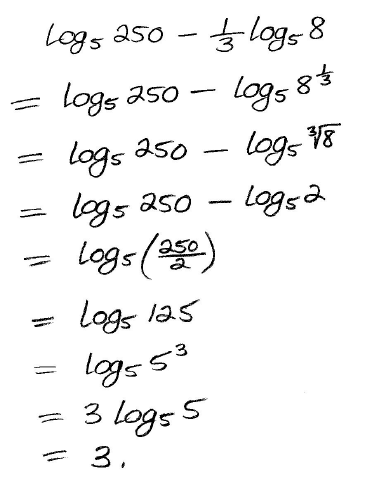 log₅ 250 − 1/3 log₅ 8
= log₅ 250 − log₅ 8^(1/3)
= log₅ 250 − log₅ ∛8
= log₅ 250 − log₅ 2
= log₅ (250/2)
= log₅ 125
= log₅ 5³
= 3 log₅ 5
= 3.